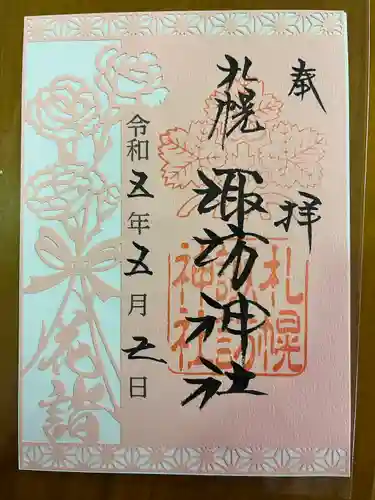 奉拝
札幌諏訪神社
札幌
諏訪
神社
令和五年五月五日
花詣